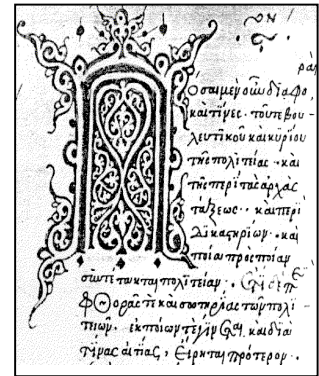 Πόσαι μὲν οὖν διαφοραὶ
καὶ τίνες· τοῦ τε βου-
λευτικοῦ καὶ κυρίου
τῆς πολιτείας· καὶ
τῆς περὶ τὰς ἀρχὰς
τάξεως· καὶ περὶ
δικαστηρίων· καὶ
ποία πρὸς ποίαν
συντέτακται πολιτείαν·
φθορᾶς τε καὶ σωτηρίας τῶν πολι-
τειῶν· ἐκ ποίων τε γίνεται, καὶ διὰ
τίνας αἰτίας, εἴρηται πρότερον·